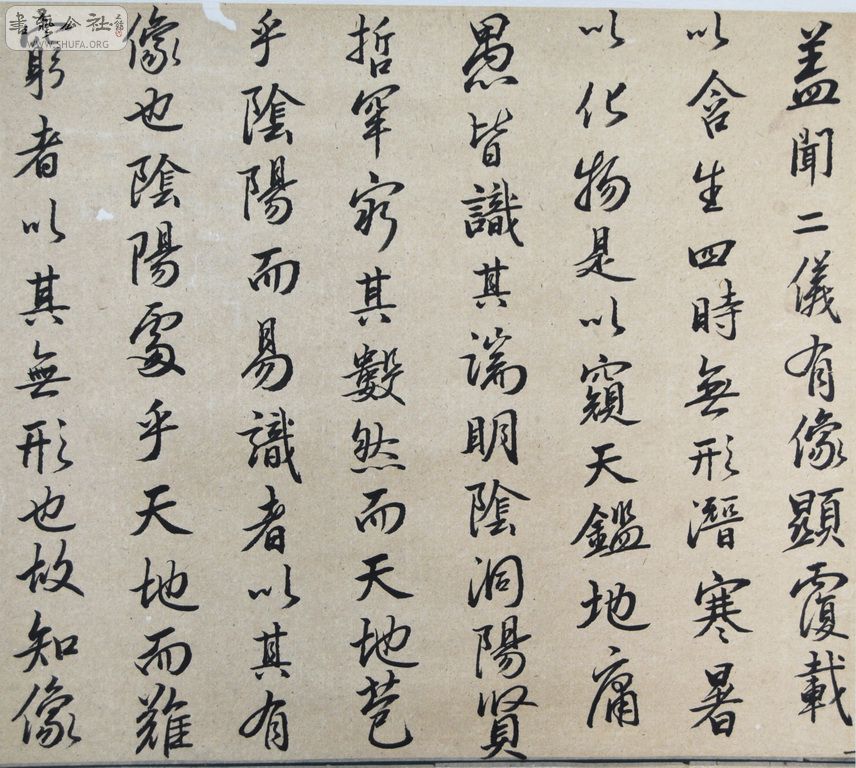 蓋聞二儀有像顯覆載
以含生四時無形潛寒暑
以化物是以窺天鑑地庸
愚皆識其端明陰洞陽賢
哲罕窮其數然而天地苞
乎陰陽而易識者以其有
像也陰陽處乎天地而難
窮者以其無形也故知像
書藝公社
WWW.SHUFA.ORG